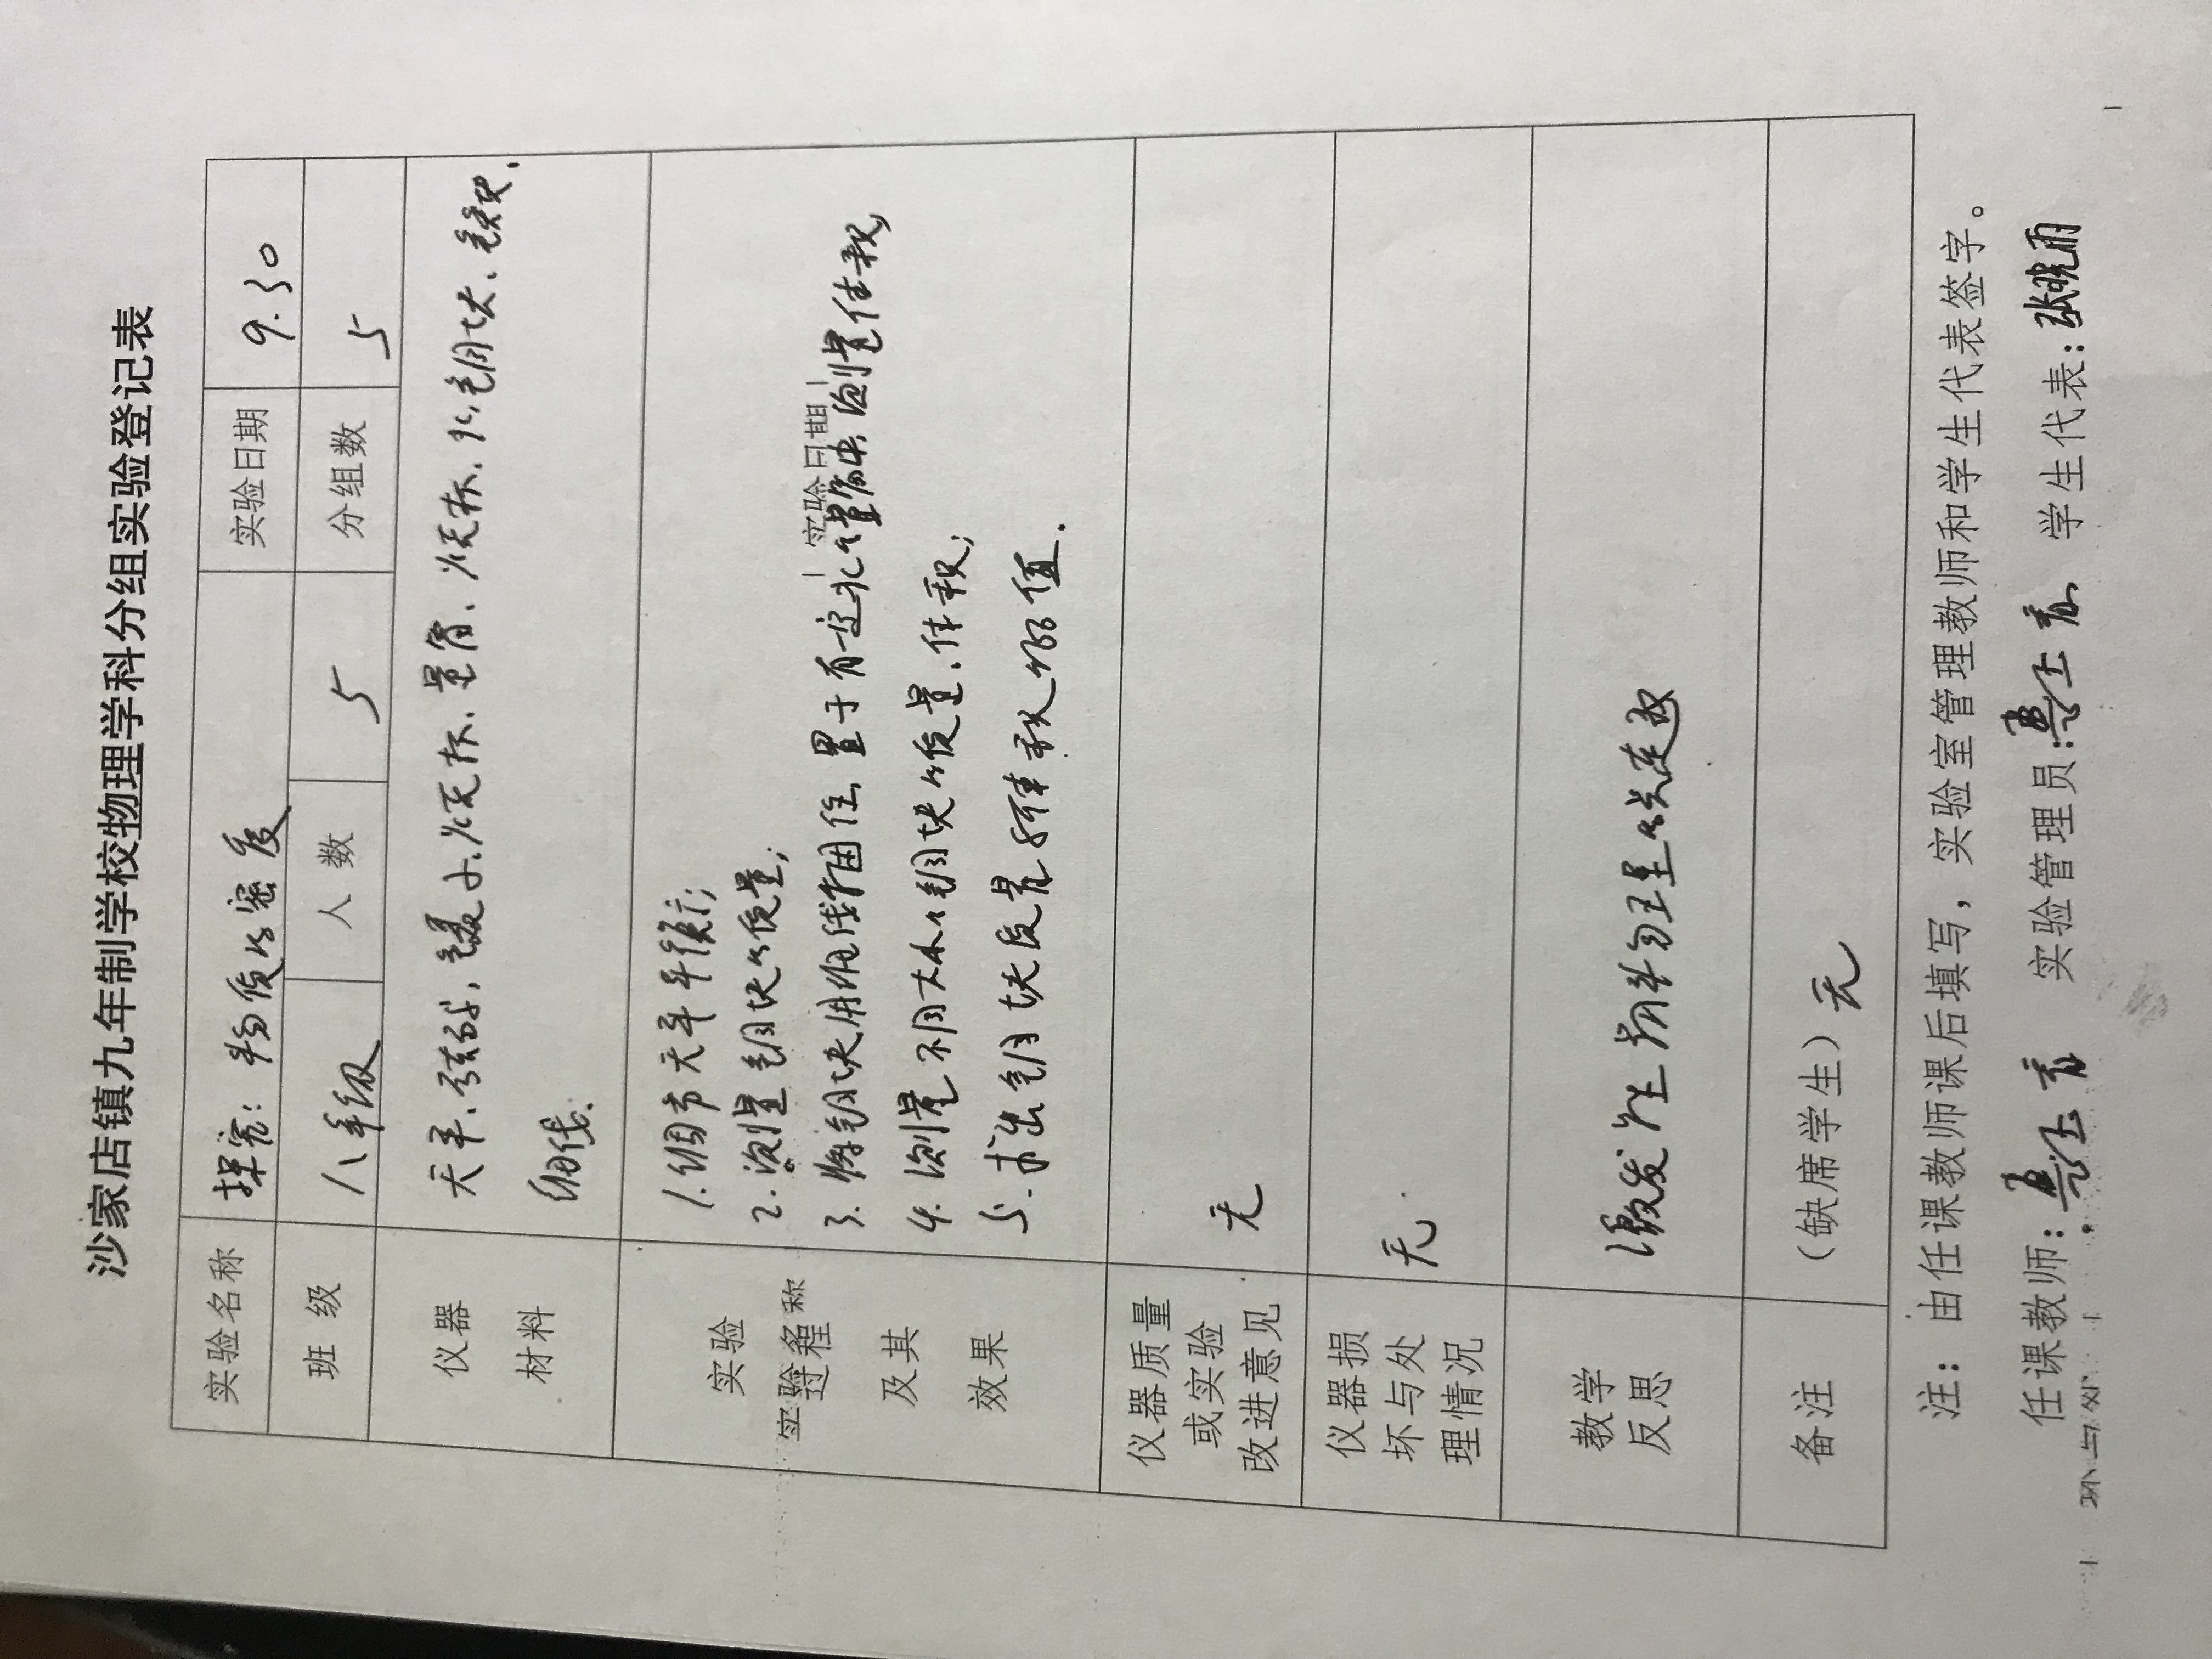 沙家店镇九年制学校物理学科分组实验登记表
实验名称 探究:物质的密度 实验日期 9.30
班级 八年级 人数 5 分组数 5
仪器材料 天平、砝码、镊子、烧杯、量筒、烧杯、水、铜块、铁块、
细线.
实验过程及其效果
1.调节天平平衡;
2.测量铜块的质量;
3.将铜块用细线捆住,置于有适水量筒中,测量体积;
4.测量不同大小铜块的质量、体积;
5.求出铜块质量与体积的比值.
仪器质量或实验改进意见 无
仪器损坏与处理情况 无.
教学反思 激发学生对物理的兴趣
备注 (缺席学生)无
注:由任课教师课后填写,实验室管理教师和学生代表签字。
任课教师: 实验管理员: 学生代表:张晓雨